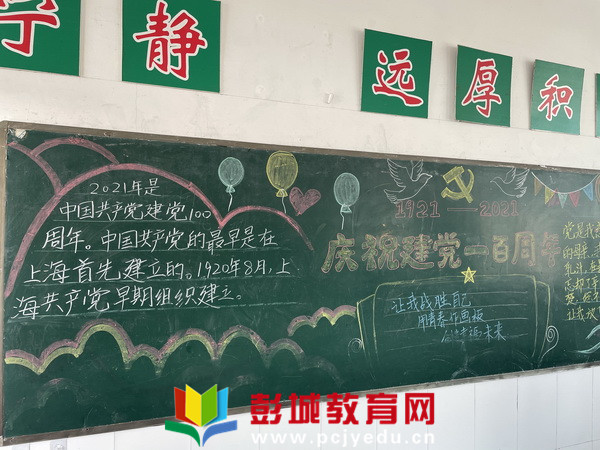 宁 静 远 厚 积
2021年是
中国共产党建党100
周年。中国共产党的最早是在
上海首先建立的。1920年8月,上
海共产党早期组织建立。
1921——2021
庆祝建党一百周年
让我战胜自己
用青春作画板
未来
党是我
彭城教育网
www.pcjyedu.cn